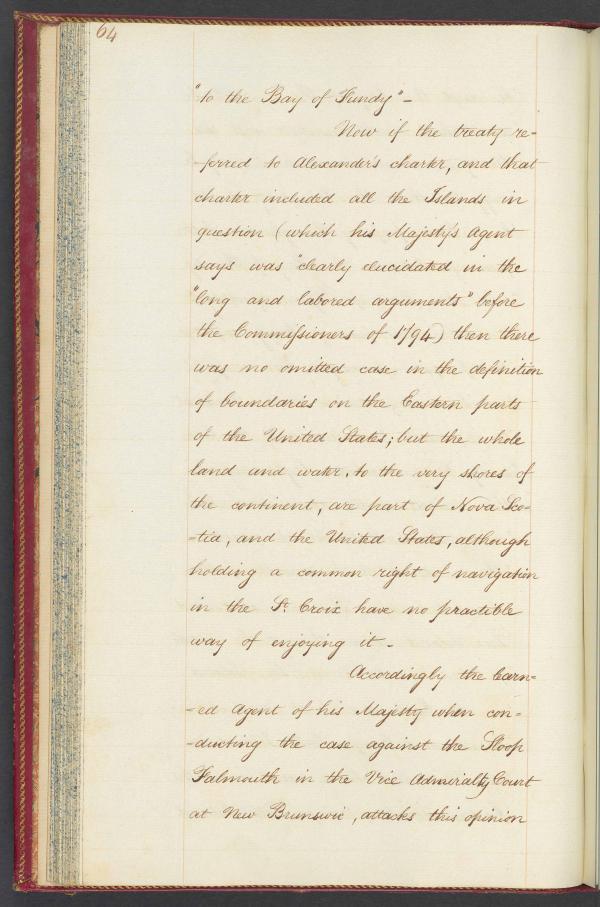 64
"to the Bay of Fundy" -
Now if the treaty re-
-ferred to Alexander's charter, and that
charter included all the Islands in
question (which his Majesty's Agent
says was "clearly elucidated in the
"long and labored arguments" before
the Commissioners of 1794) then there
was no omitted case in the definition
of boundaries on the Eastern parts
of the United States; but the whole
land and water, to the very shores of
the continent, are part of Nova Sco-
-tia, and the United States, although
holding a common right of navigation
in the St. Croix have no practible
way of enjoying it -
Accordingly the learn-
-ed Agent of his Majesty when con-
-ducting the case against the Sloop
Falmouth in the Vice Admiralty Court
at New Brunswic, attacks this opinion